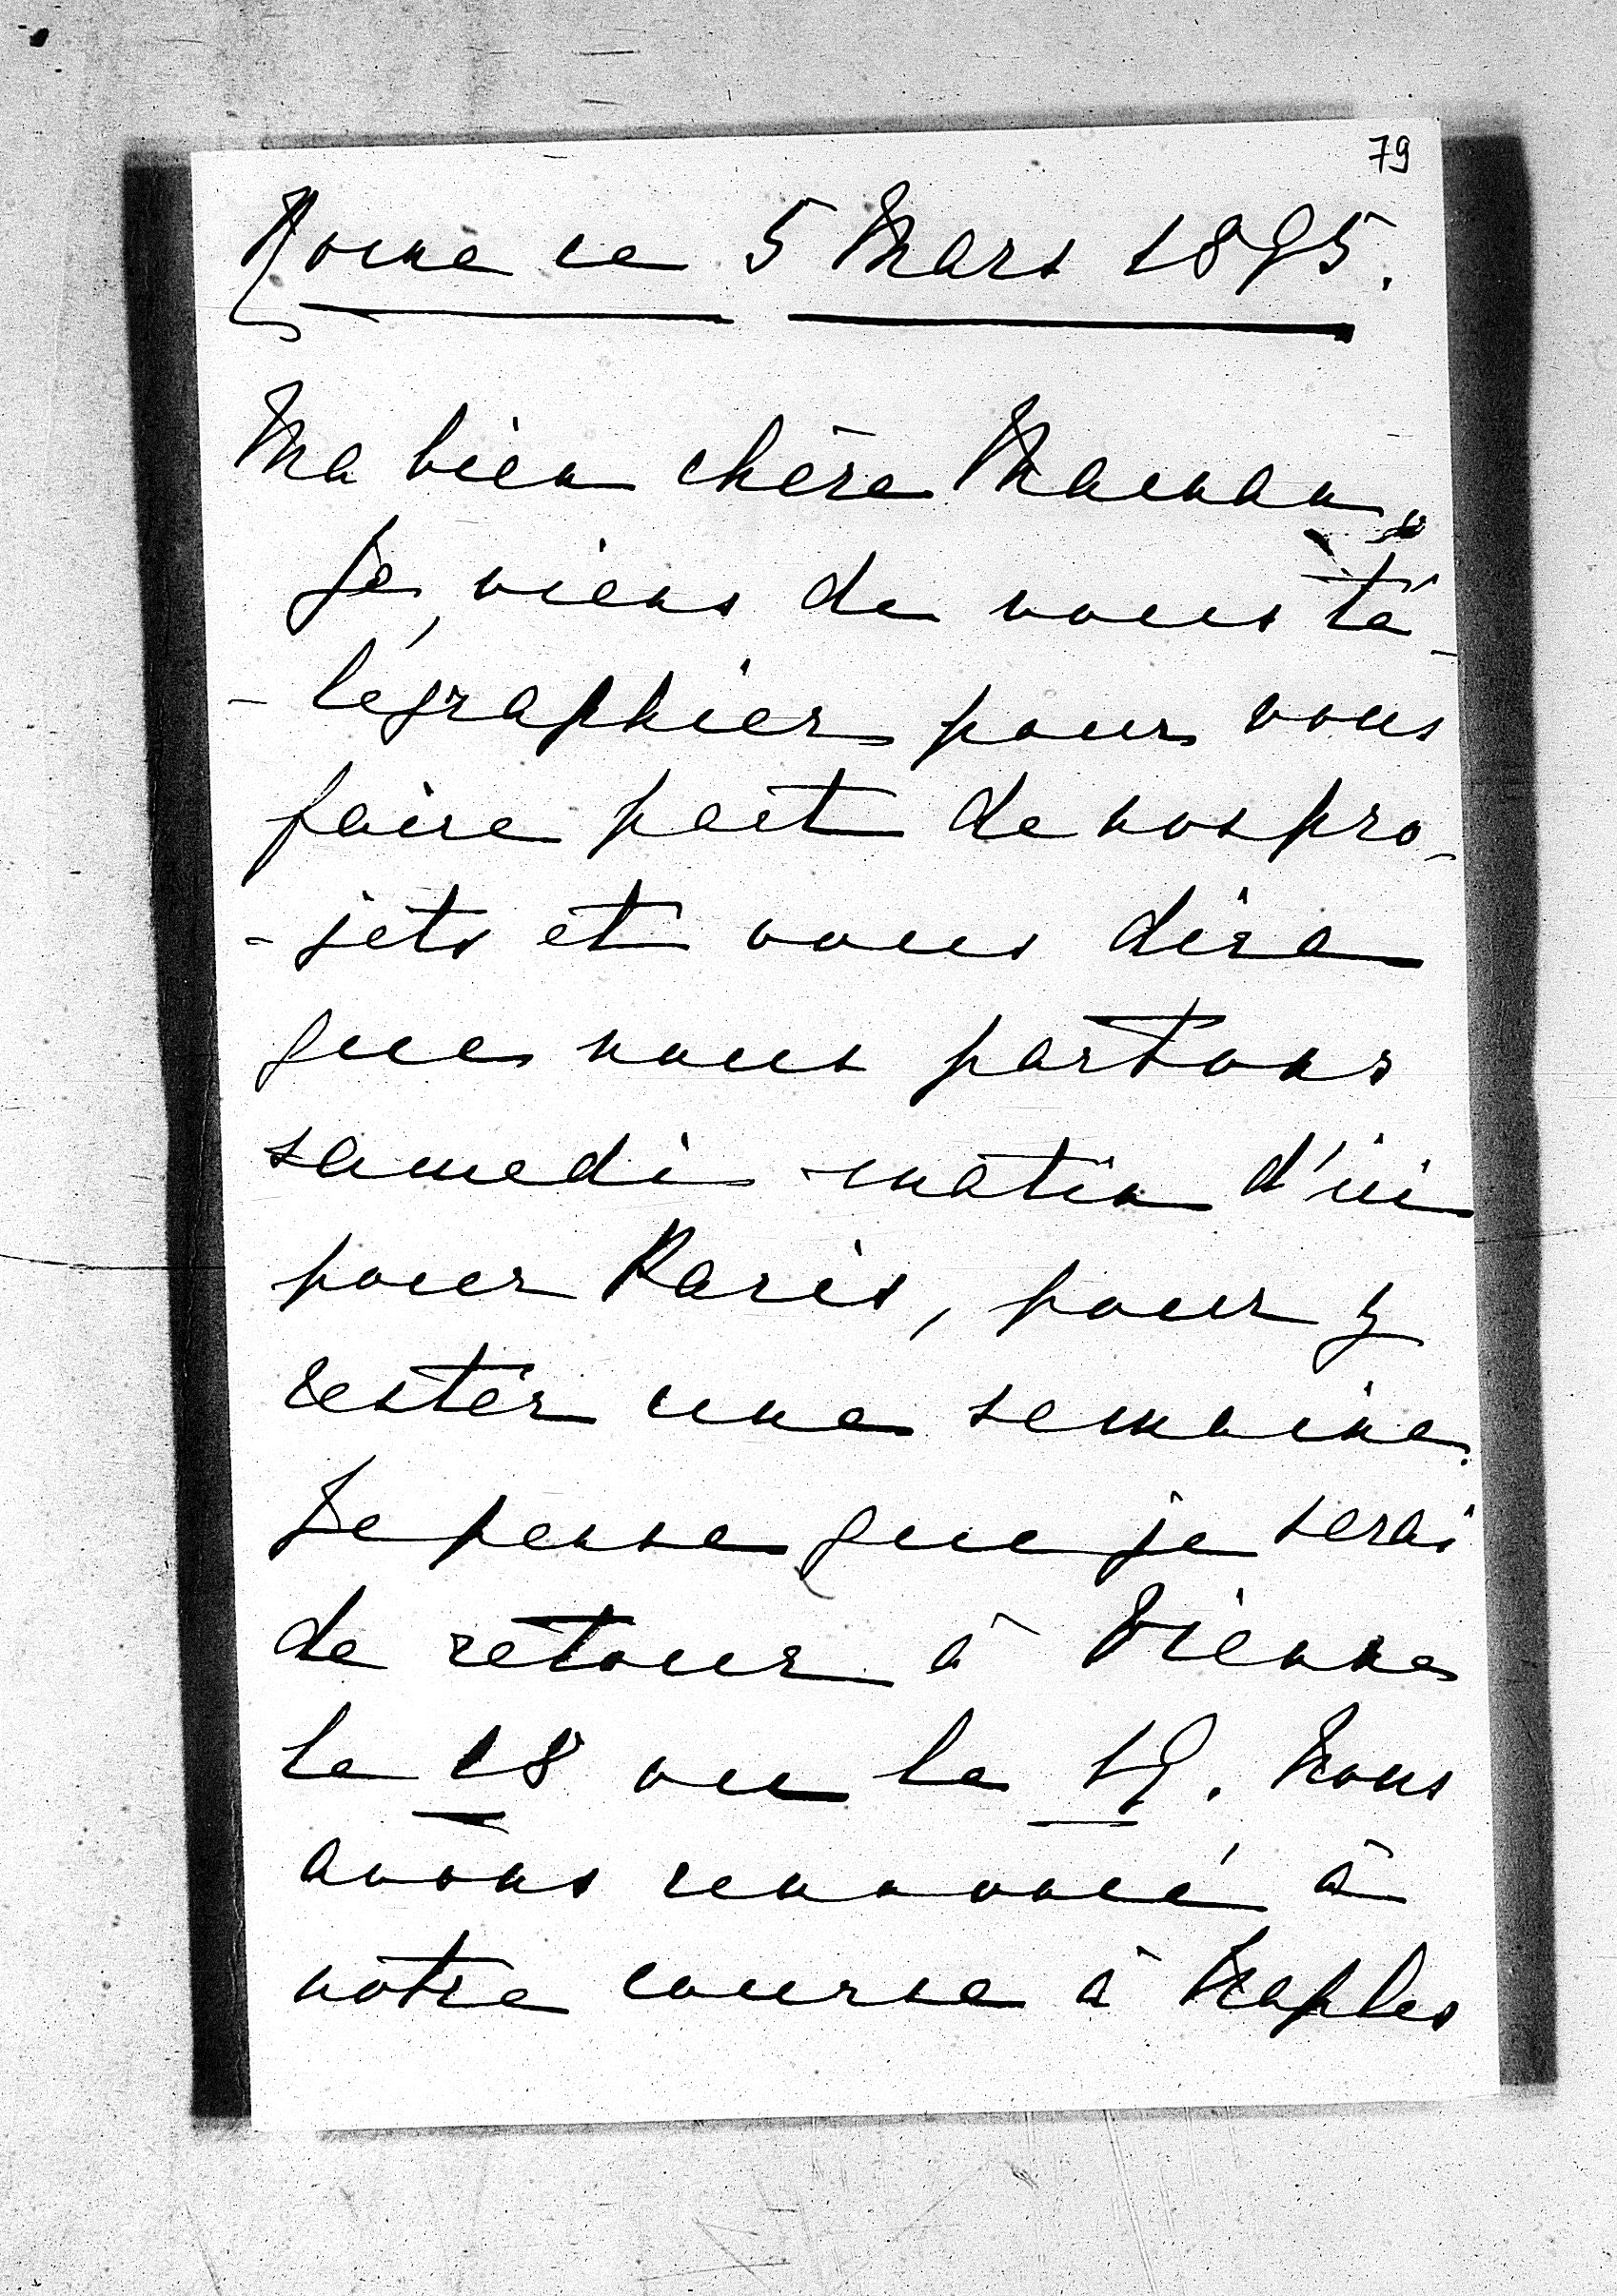 79
Rome ce 5 Mars 1895.
Ma bien chère Maman,
Je viens de vous té-
-légraphier pour vous
faire part de nos pro-
-jets et vous dire
que nous partons
samedi matin d'ici
pour Paris, pour y
rester une semaine.
Je pense que je serai
de retour à Vienne
le 18 ou le 19. Nous
avons renoncé à
notre course à Naples